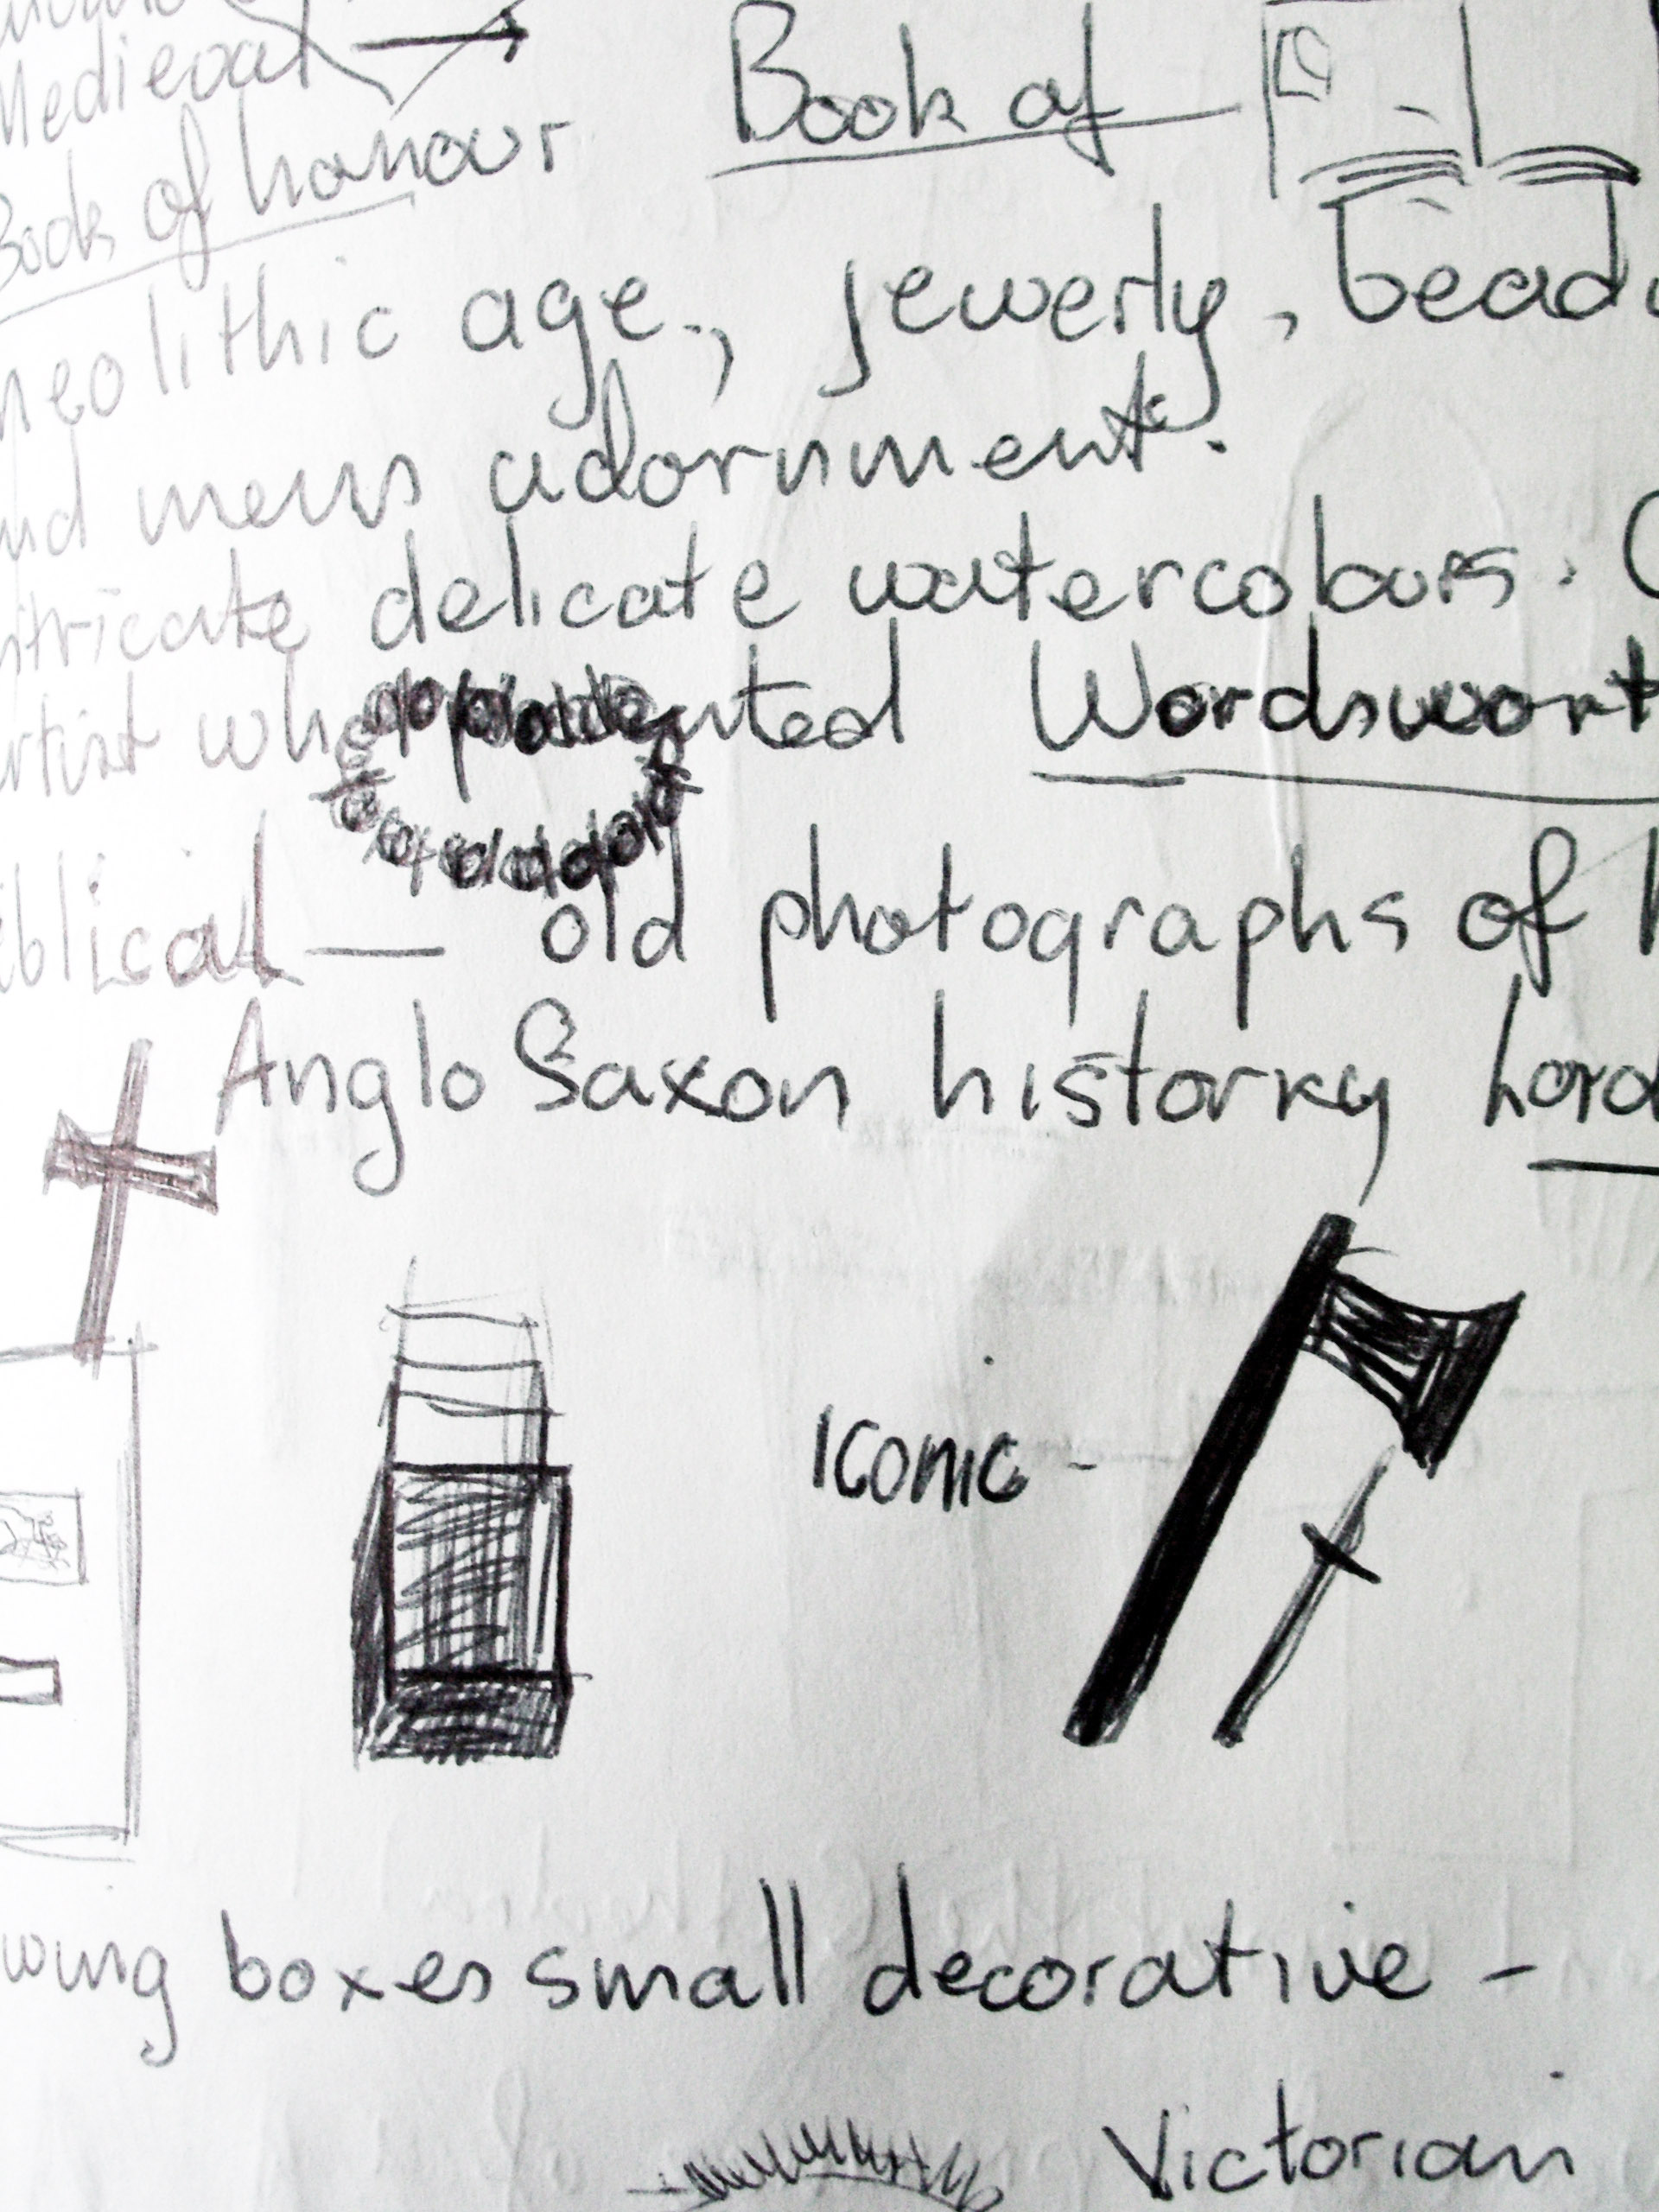 Medieval
Book of
Book of honour
neolithic age., jewerly, bead
and mens adornment.
intricate delicate watercolours.
artist who painted Wordswort
iblical — old photographs of
Anglo Saxon historky Lord
Iconic -
wing boxes small decorative -
Victorian